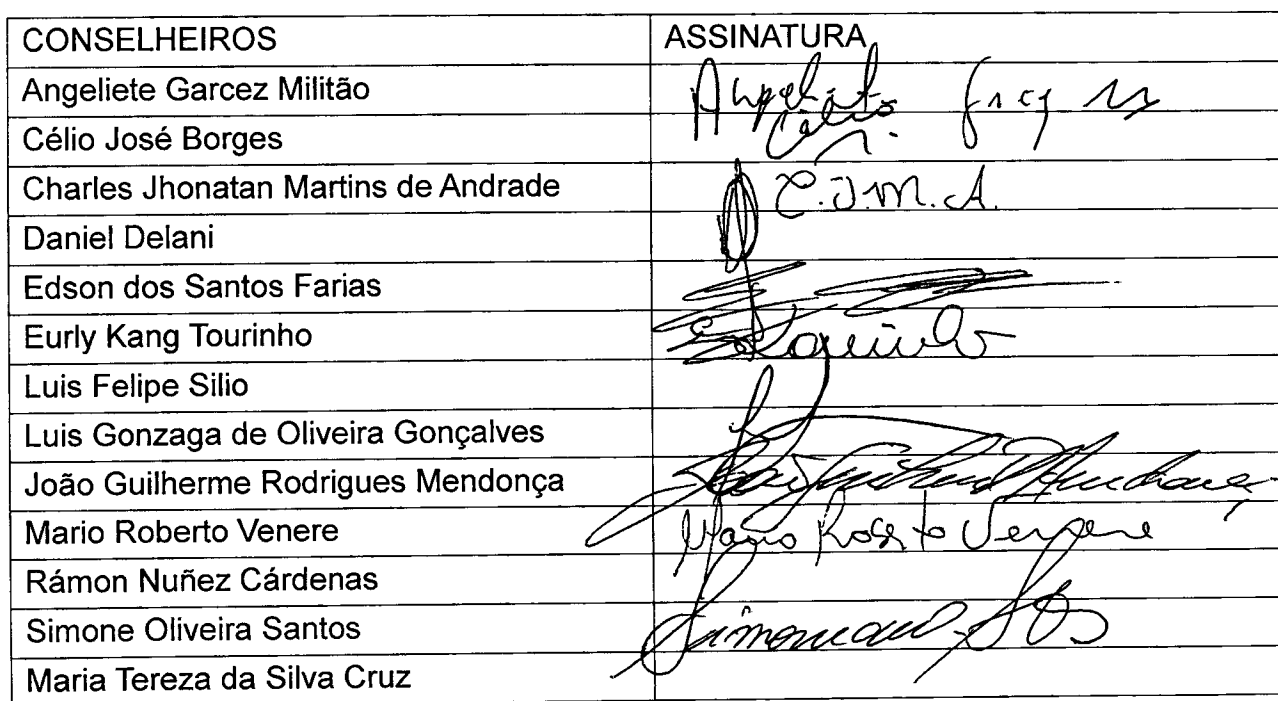 CONSELHEIROS ASSINATURA
Angeliete Garcez Militão
Célio José Borges Célio
Charles Jhonatan Martins de Andrade C.J.M.A.
Daniel Delani
Edson dos Santos Farias
Eurly Kang Tourinho
Luis Felipe Silio
Luis Gonzaga de Oliveira Gonçalves
João Guilherme Rodrigues Mendonça
Mario Roberto Venere Mario Roberto Venere
Rámon Nuñez Cárdenas
Simone Oliveira Santos
Maria Tereza da Silva Cruz